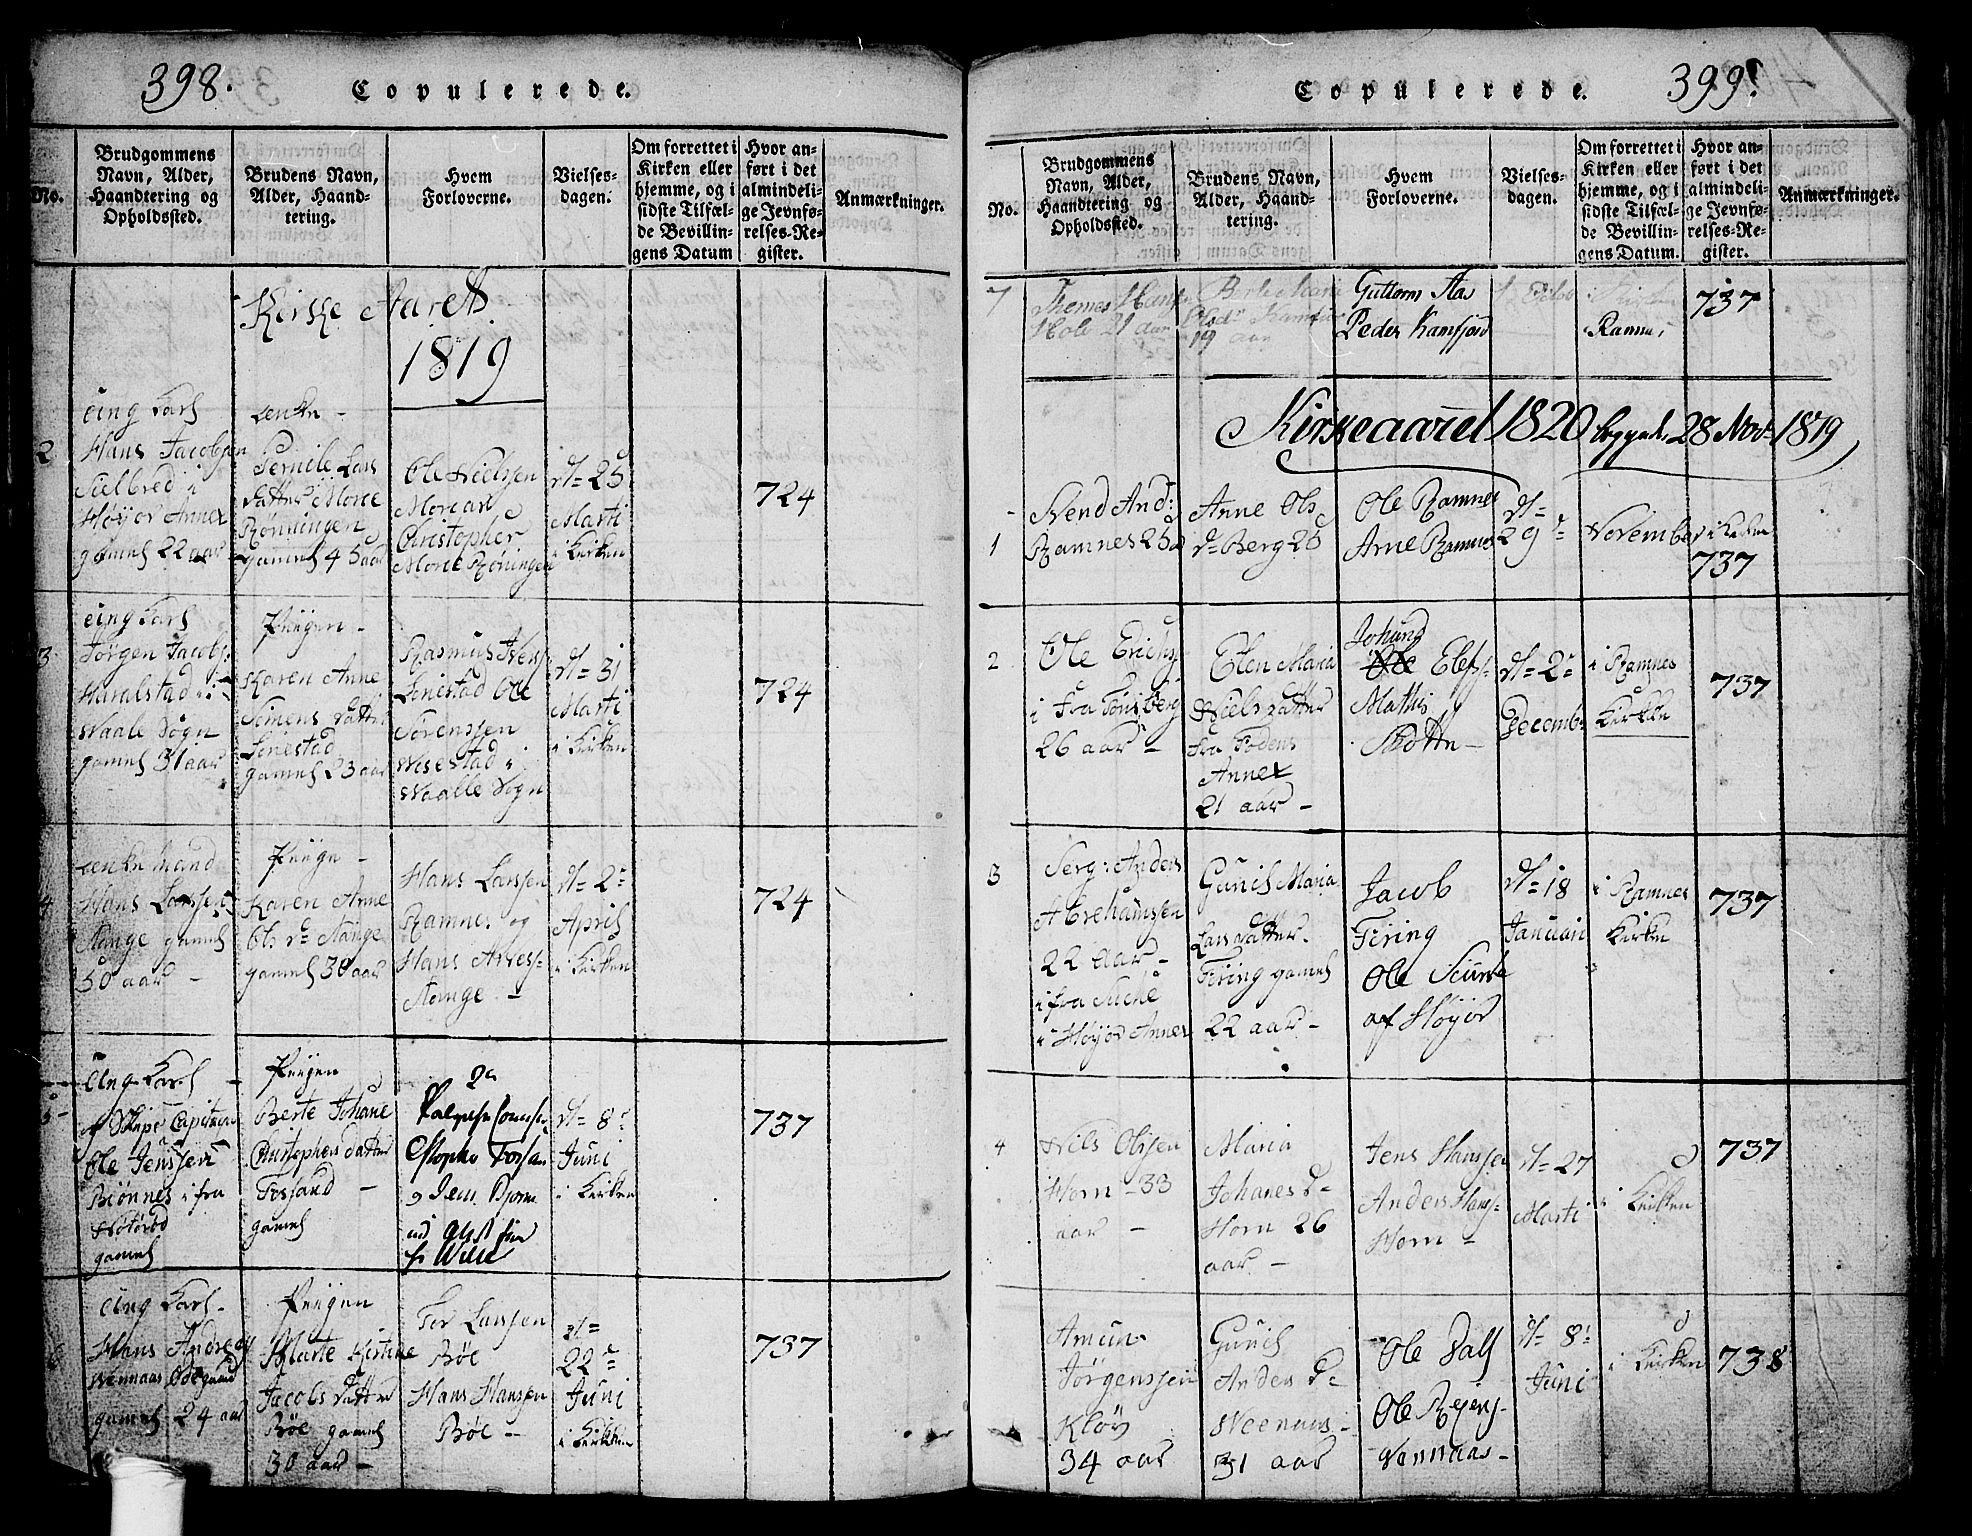 398.
Copulerede.
No.
Brudgommens
Navn, Alder,
Haandtering og
Opholdssted.
Brudens Navn,
Alder, Haand-
tering.
Hvem
Forloverne.
Vielses-
dagen.
Om forrettet i
Kirken eller
hjemme, og i
sidste Tilfæl-
de Bevillin-
gens Datum
Hvor an-
ført i det
almindeli-
ge Jevnfø-
relses-Re-
gister.
Anmærkninger.
Kirke Aaret
1819
2
ung Karl
Hans Jacobsen
Sielbred i
Høyor Annex
gamel 22 aar
Enke
Pernile Lars
Datter Moree
Rønningen
gamel 45 aar
Ole Nielssen
Morean
Christopher
Moree Røningen
d= 25
Marti
i Kirken
724
3
ung Karl
Jørgen Jacobs:
Haralstad i
Vaale Sogn
gamel 31 aar
Piigen
Karen Anne
Simens Datter
Linestad
gamel 23 aar
Rasmus Ivers:
Linestad Ole
Sørenssen
Wisestad i
Vaalle Sogn
d= 31
Marti
i Kirken
724
4
Enke Mand
Hans Larssen
Stange gamel
50 aar
Piige
Karen Anne
Ols D= Stange
gamel 30 aar
Hans Larssen
Ramne. og
Hans Arness:
Stange
d= 2=
April
i Kirken
724
5
ung Karl
Skips Capitain
Ole Jenssen
Biønnes i fra
gamel
Piigen
Berte Johane
Christophers Datter
Fossand
gamel
d= 8=
Juni
i Kirken
737
6
ung Karl
Hans Andreas
Wennaas Ødegaard
gamel 24 aar
Piigen
Marte Kirstine
Jacobs Datter
Bøe gamel
30 aar
Tor Larssen
Bøe
Hans Hanssen
Bøe
d=
22=
Juni
i Kirken
737
399.
Copulerede.
No.
Brudgommens
Navn, Alder,
Haandtering og
Opholdssted.
Brudens Navn,
Alder, Haand-
tering.
Hvem
Forloverne.
Vielses-
dagen.
Om forrettet i
Kirken eller
hjemme, og i
sidste Tilfæl-
de Bevillin-
gens Datum.
Hvor an-
ført i det
almindeli-
ge Jevnfø-
relses-Re-
gister.
Anmærkninger.
7
Thomes Hans:
Hole 21 aar
Berte Maria
19 aar
Guttorm Aas
Peder Kamfjord
i Kirken
Ramnes
737
Kirkeaaret 1820 begynd. 28 Nov: 1819
1
Svend And:
Ramnes 25
Anne Ols
D= Berg 26
Ole Ramnes
Arne Ramnes
d=
29=
November i Kirken
737
2
Ole Erichs:
i fra Tønsberg
26 aar
Elen Maria
Niels Datter
fra Fodens
Annex
21 aar
Johand
Elefs:
Mathis
Skotte
d= 2=
Decemb.
i Ramnes
Kirken
737
3
Serg: Anders
Abrehamssen
22 aar
i fra
i Høyor Annex
Gunil Maria
Lars Datter
Firing gamel
22 aar
Jacob
Firing
Ole
af Høyor
d= 18
Januari
i Ramnes
Kirken
737
4
Nils Olssen
Horn 33
aar
Maria
Johanes D=
Horn 26
aar
Jens Hanssen
Anders Hans:
Horn
d= 27
Marti
i Kirken
737
Amun
Jørgenssen
Kløv
34 aar
Gunil
Anders D=
Weenaas
31 aar
Ole Dall
Ole
Vennaas
d= 8=
Juni
i Kirken
738